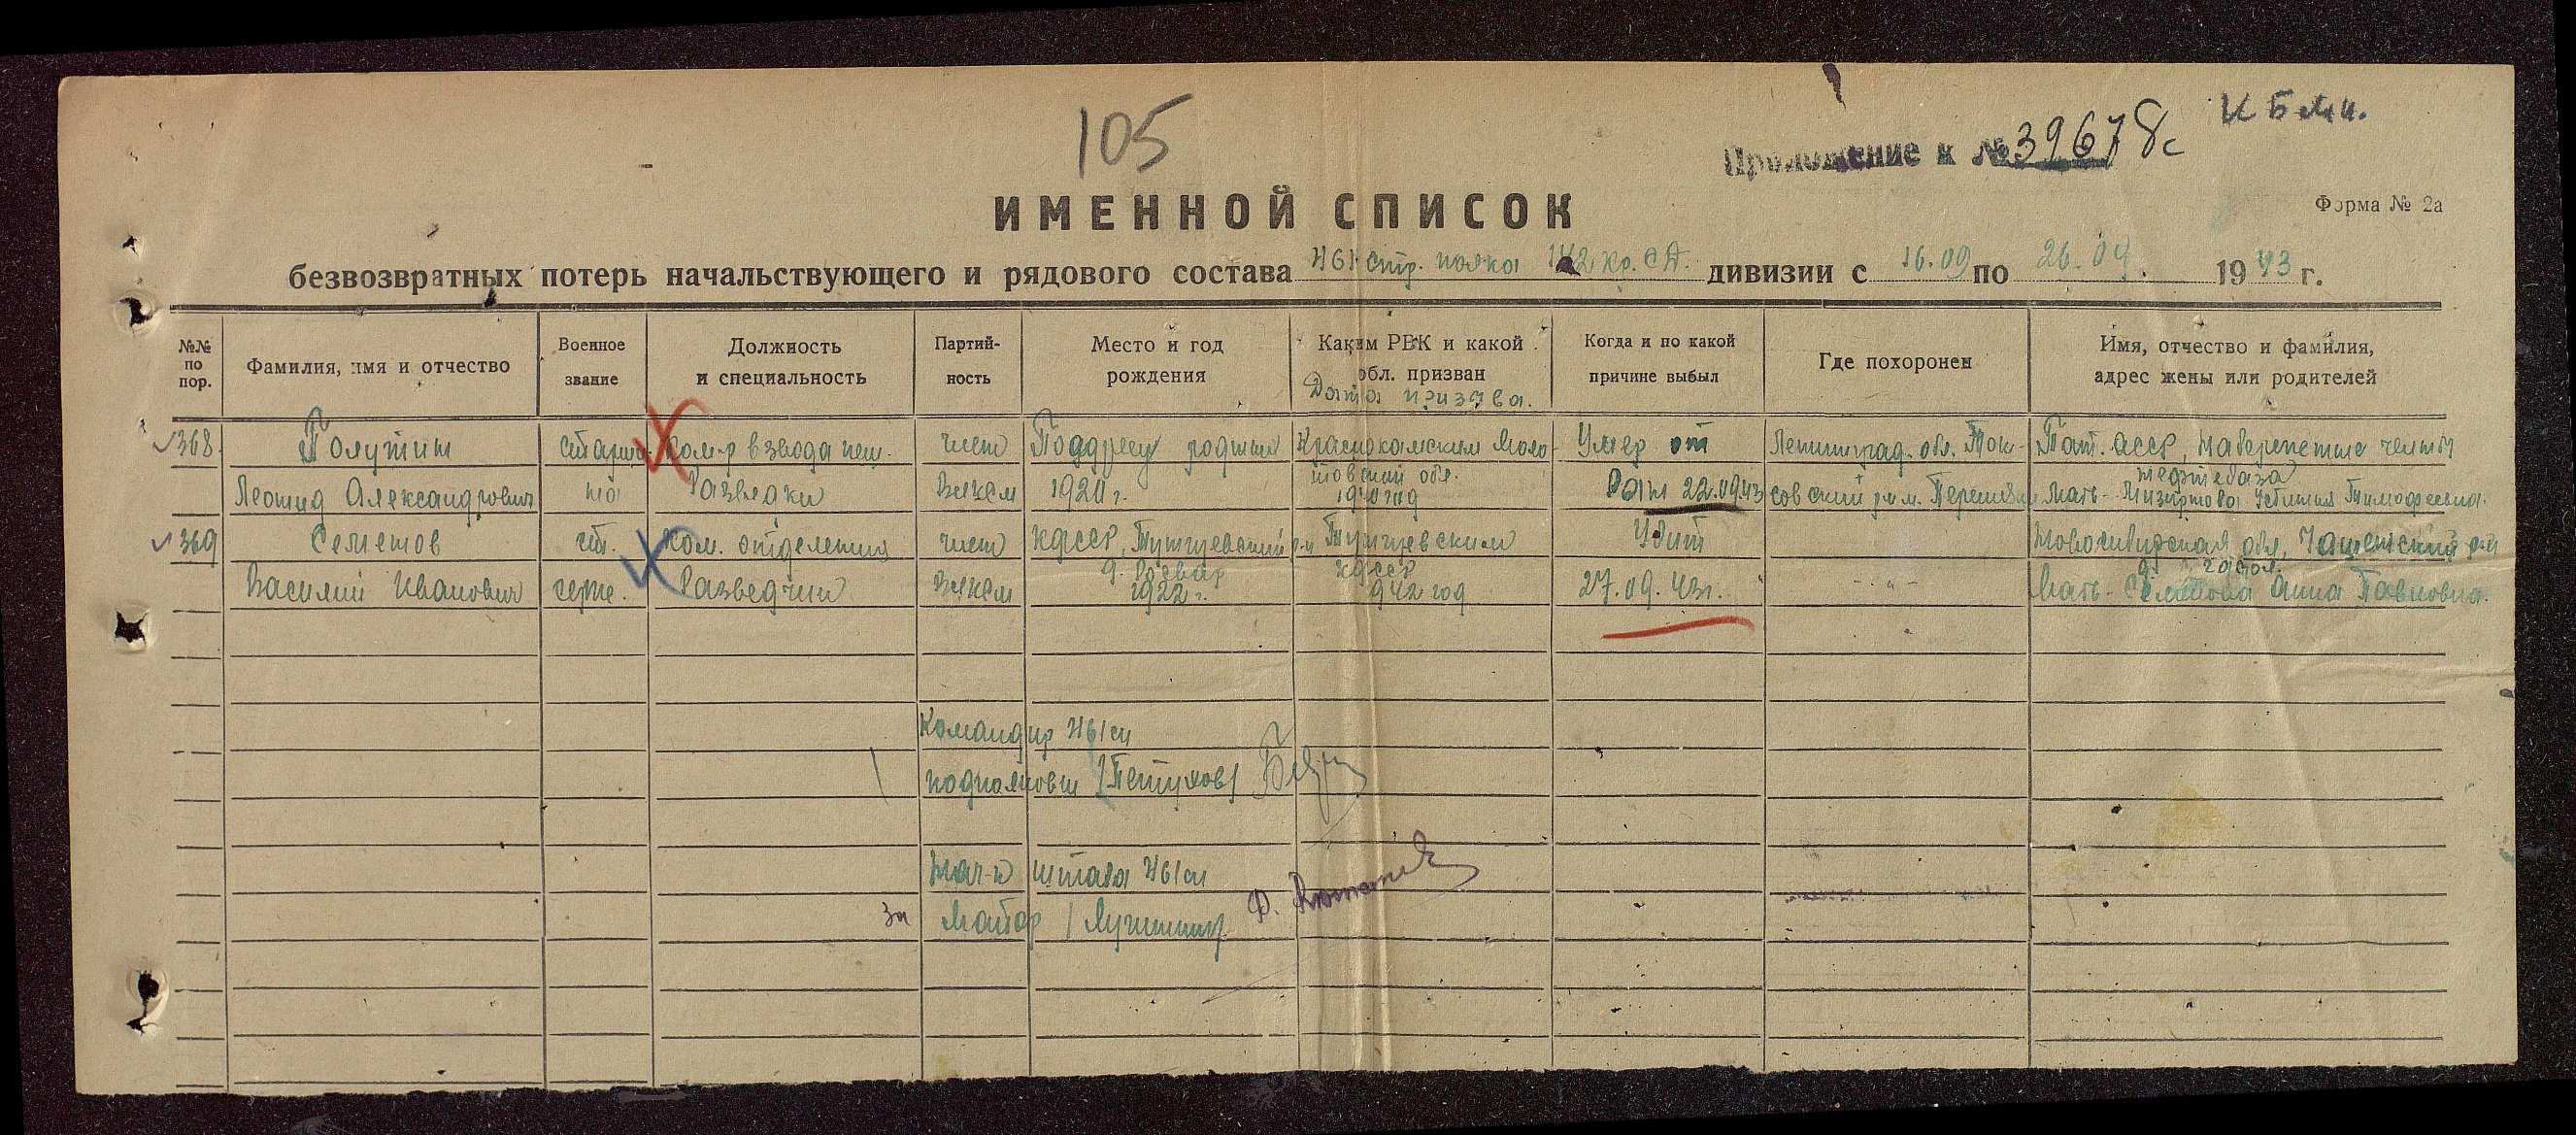 105
Приложение к № 39678с
ИМЕННОЙ СПИСОК
Форма № 2а
безвозвратных потерь начальствующего и рядового состава 461 стр. полка 142 кр. СД. дивизии с 16.09 по 26.09. 1943 г.
№№ по пор.
Фамилия, имя и отчество
Военное звание
Должность и специальность
Партийность
Место и год рождения
Каким РВК и какой обл. призван
Дата призыва.
Когда и по какой причине выбыл
Где похоронен
Имя, отчество и фамилия, адрес жены или родителей
368 Полутин старши- Ком-р взвода пеш. член Краснокамским Моло- Умер от Ленинград. обл. Ток- Тат. АССР, Набережные Челны
товский обл. нефтебаза
Леонид Александрович на Разведки Влксм 1920 г. 1940 год Ран 22.09.43 совский р-н. Мать- Тимофеевна.
369 Семенов ст. Ком. отделения член Убит Новосибирская обл,
Василий Иванович серж. Разведчик Влксм 1922 г. 942 год 27.09.43г. -"- Мать- Семенова Анна Павловна.
Командир 461 сп
подполковн /Петухов/
Нач-к штаба 461 сп
За Майор /Лушнин/